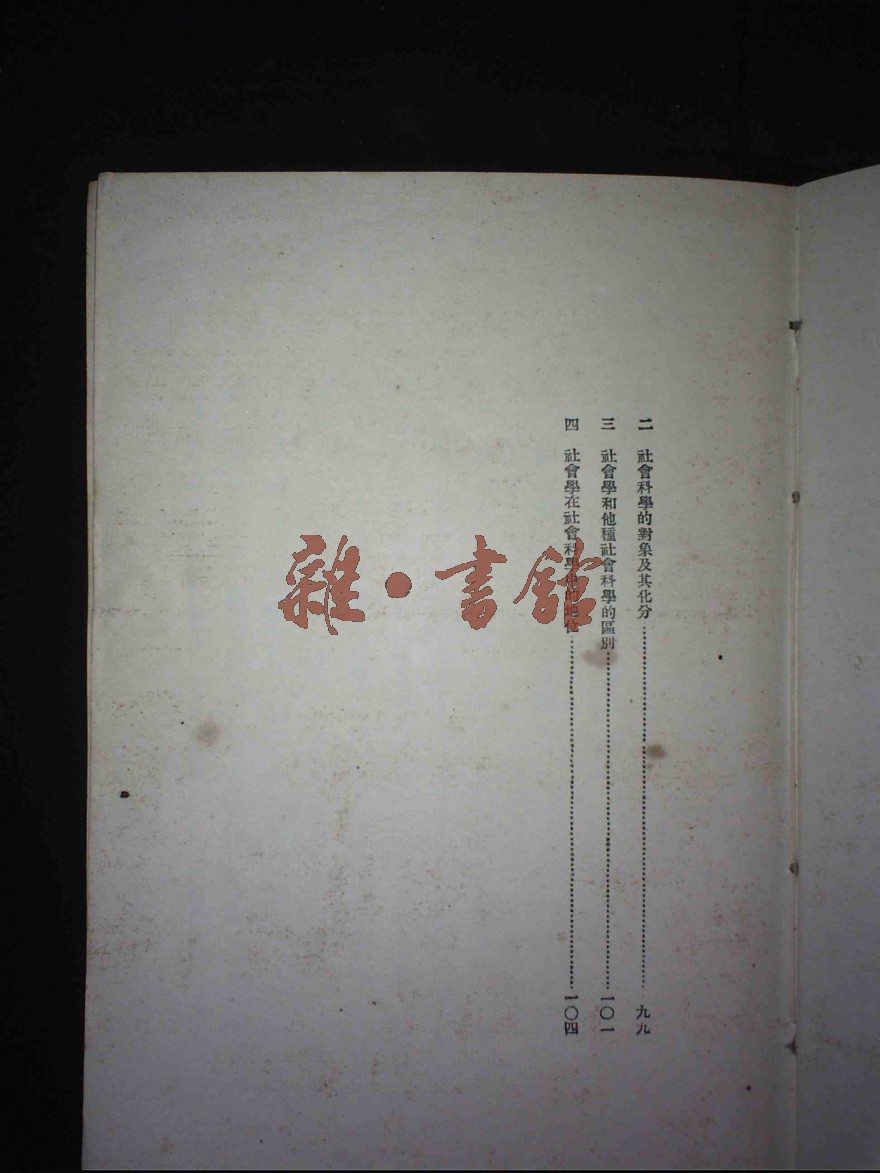 二 社會科學的對象及其化分……九九
三 社會學和他種社會科學的區別……一〇一
四 社會學在社會科學裡的地位……一〇四
雜·書館